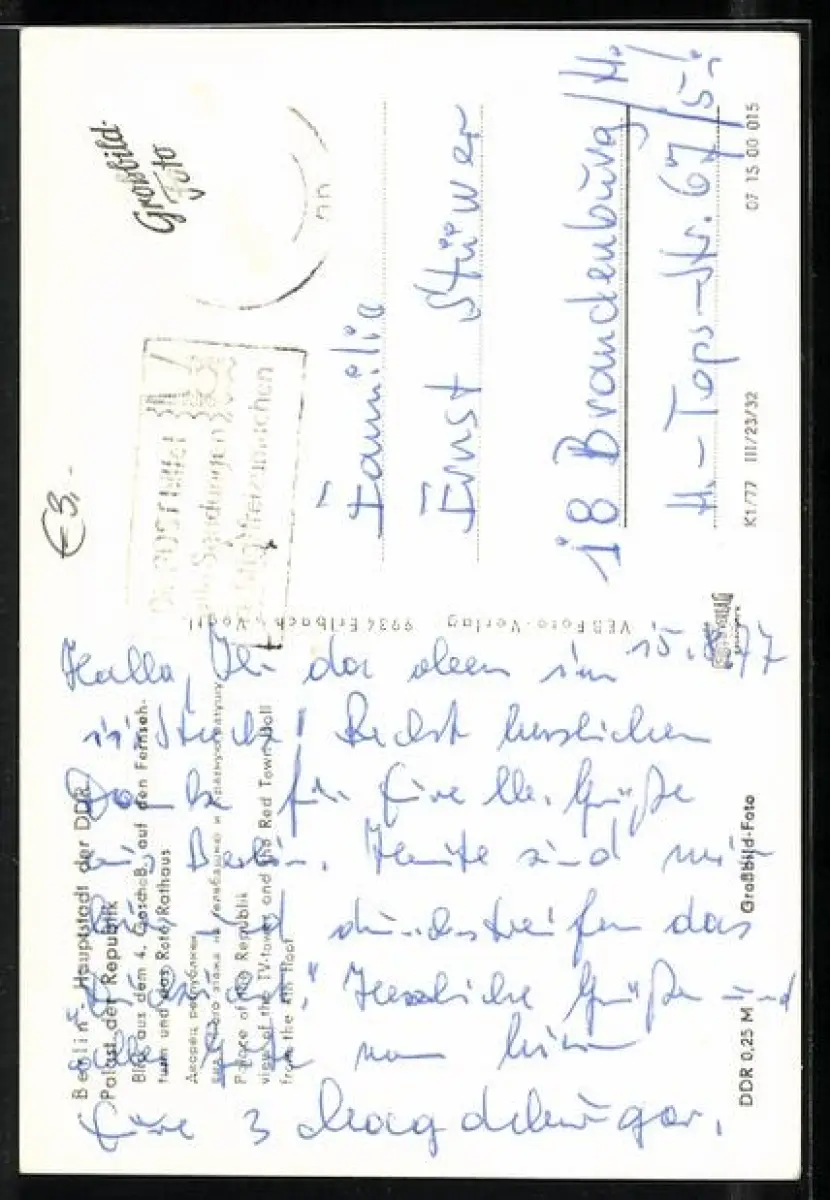 Berlin - Hauptstadt der DDR
Palast der Republik
Blick aus dem 4. Geschoß auf den Fernseh-
turm und das Rote Rathaus
Дворец республики
вид с 4-ого этажа на телебашню и Красную ратушу
Palace of the Republik
view of the TV-tower and the Red Town Hall
from the 4th floor
DDR 0,25 M
Großbild-Foto
VEB Foto-Verlag 9934 Erlbach · Vogtl
K1/77 III/23/32
07 15 00 015
Großbild-
Foto
€ 3,-
Familie
Ernst Stüwer
18 Brandenburg/H.
H.-Tops-Str. 67/5.
15. 77
Hallo, Ihr da oben im
Recht herzlichen
Dank für Eure Grüße
aus Berlin. Heute sind wir
hier und durchstreifen das
Herzliche Grüße und
alles Gute von hier
Eure 3 Magdeburger.